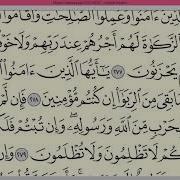 ٱلَّذِينَ ءَامَنُوا۟ وَعَمِلُوا۟ ٱلصَّٰلِحَٰتِ وَأَقَامُوا۟
ٱلزَّكَوٰةَ لَهُمْ أَجْرُهُمْ عِندَ رَبِّهِمْ وَلَا خَوْفٌ
يَحْزَنُونَ ٢٧٧ يَٰٓأَيُّهَا ٱلَّذِينَ ءَامَنُوا۟
مَا بَقِىَ مِنَ ٱلرِّبَوٰٓا۟ إِن كُنتُم مُّؤْمِنِينَ ٢٧٨ فَإِن لَّمْ
بِحَرْبٍ مِّنَ ٱللَّهِ وَرَسُولِهِۦ وَإِن تُبْتُمْ
لَا تَظْلِمُونَ وَلَا تُظْلَمُونَ ٢٧٩